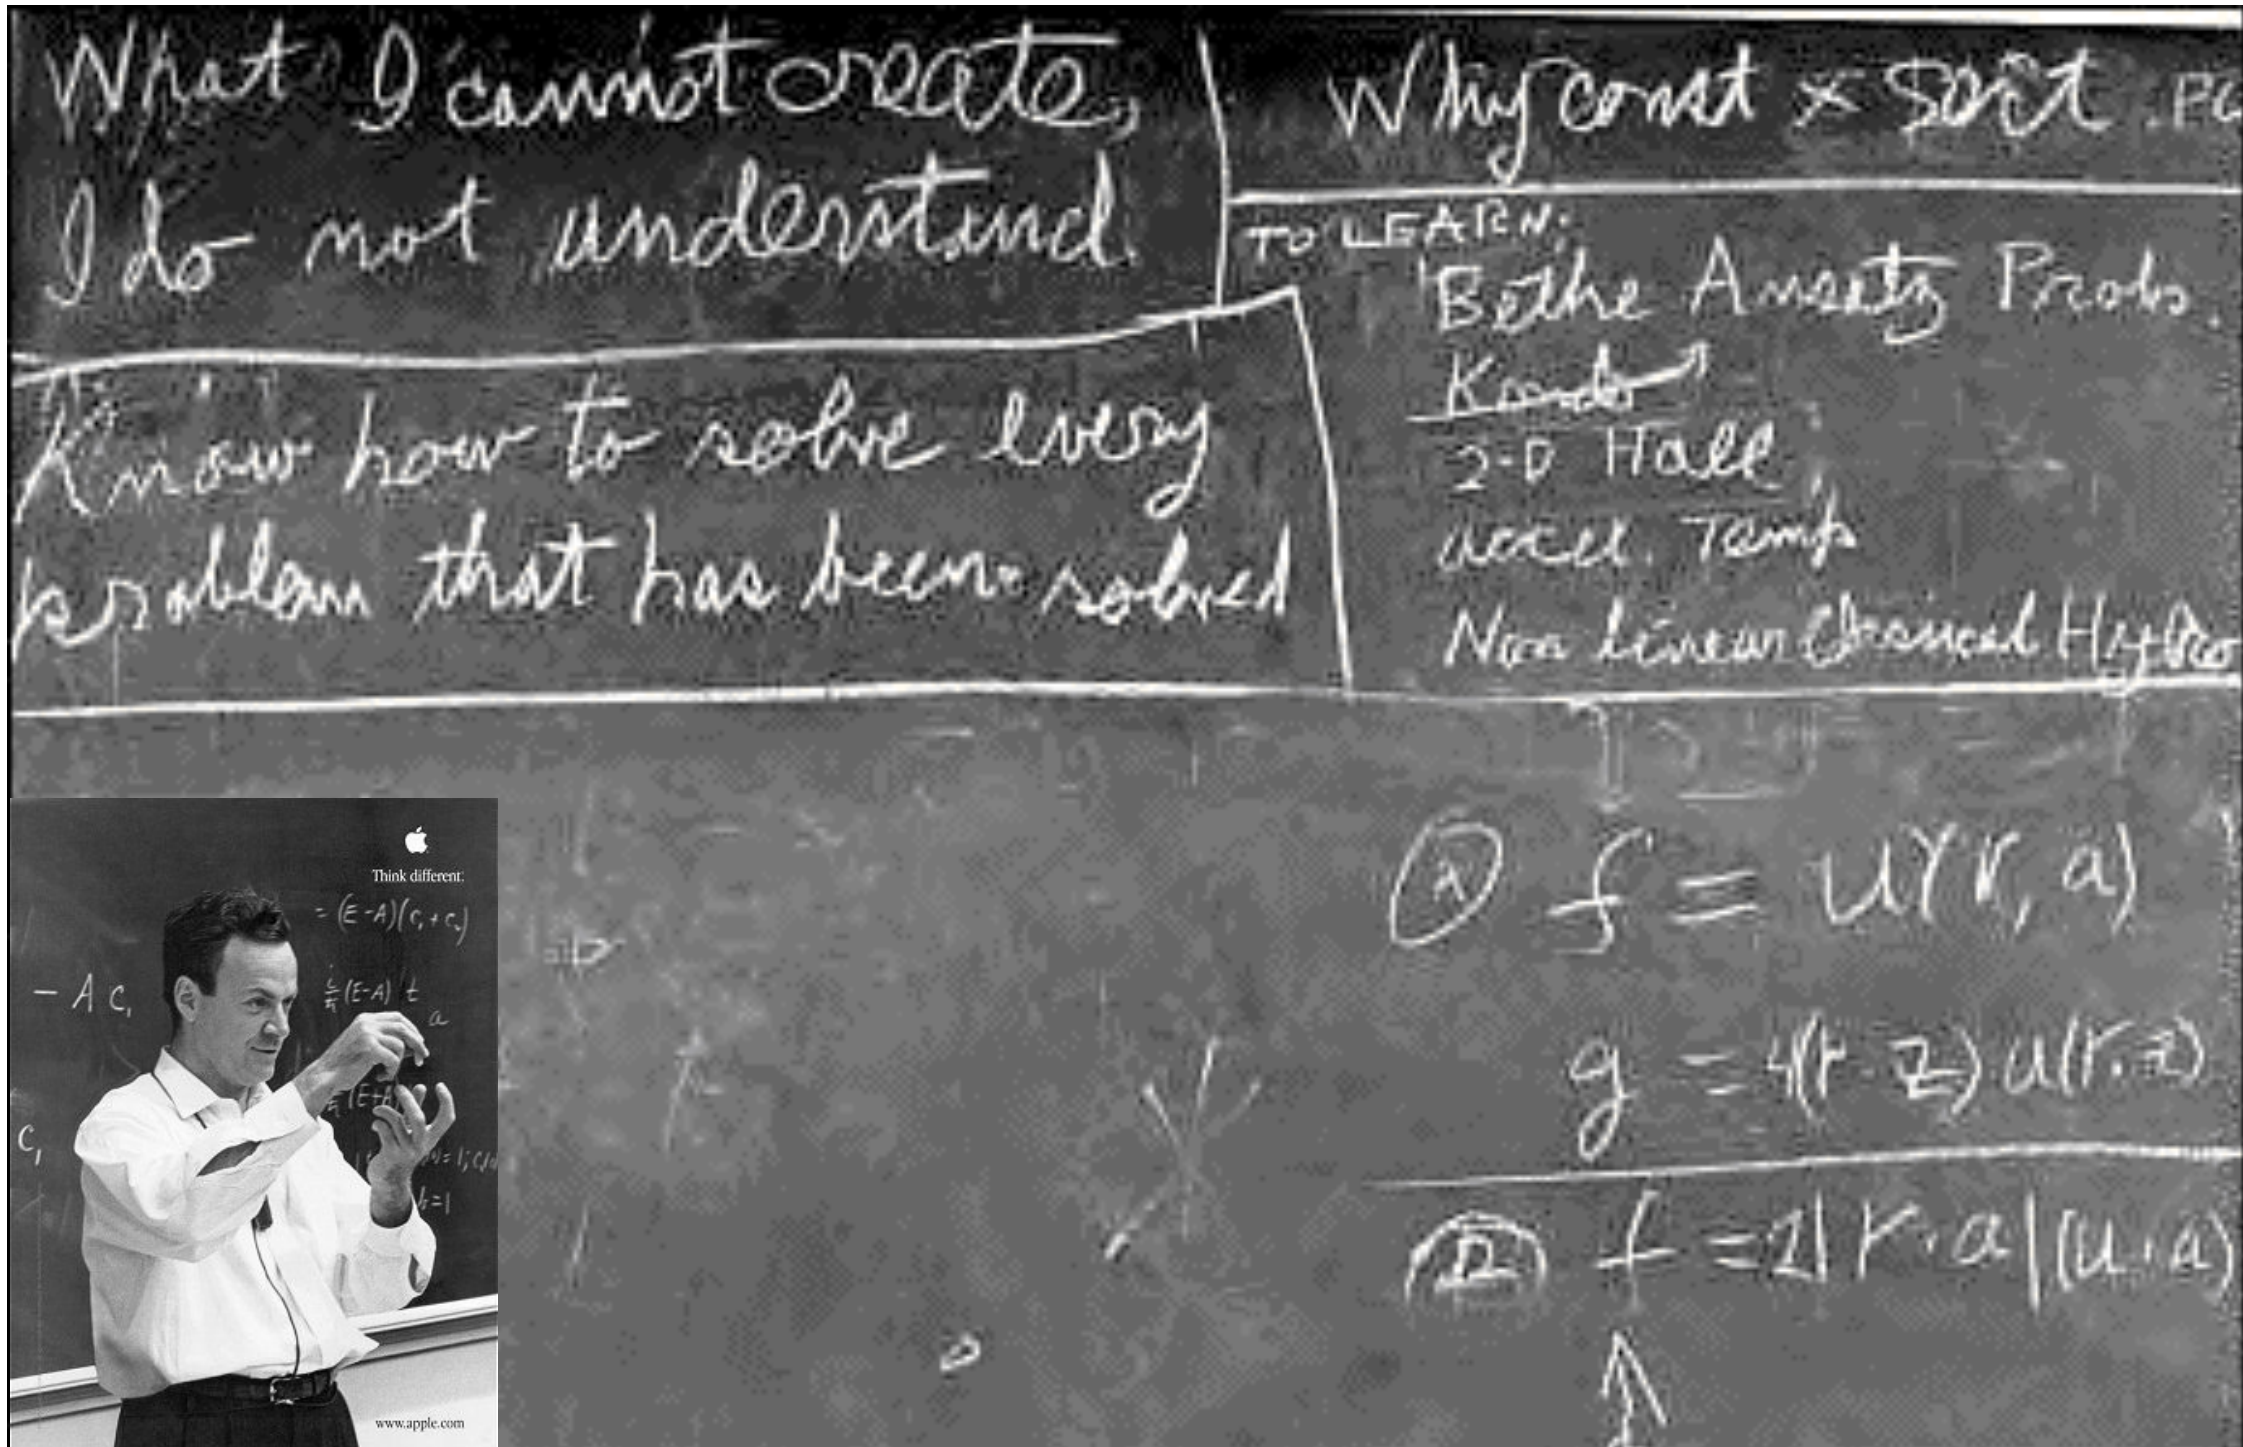 What I cannot create,
I do not understand.
Know how to solve every
problem that has been solved
Why const × sort PG
TO LEARN:
Bethe Ansatz Probs.
Kondo
2-D Hall
accel. Temp
Non Linear Classical Hydro
Ⓐ f = u(r, a)
g = 4(r·z) u(r·z)
f = 2|r·a|(u·a)
Think different.
= (E-A)(c₁+c₂)
- A c₁
(E-A) t
a
(E+A)
c₁
b=1
www.apple.com